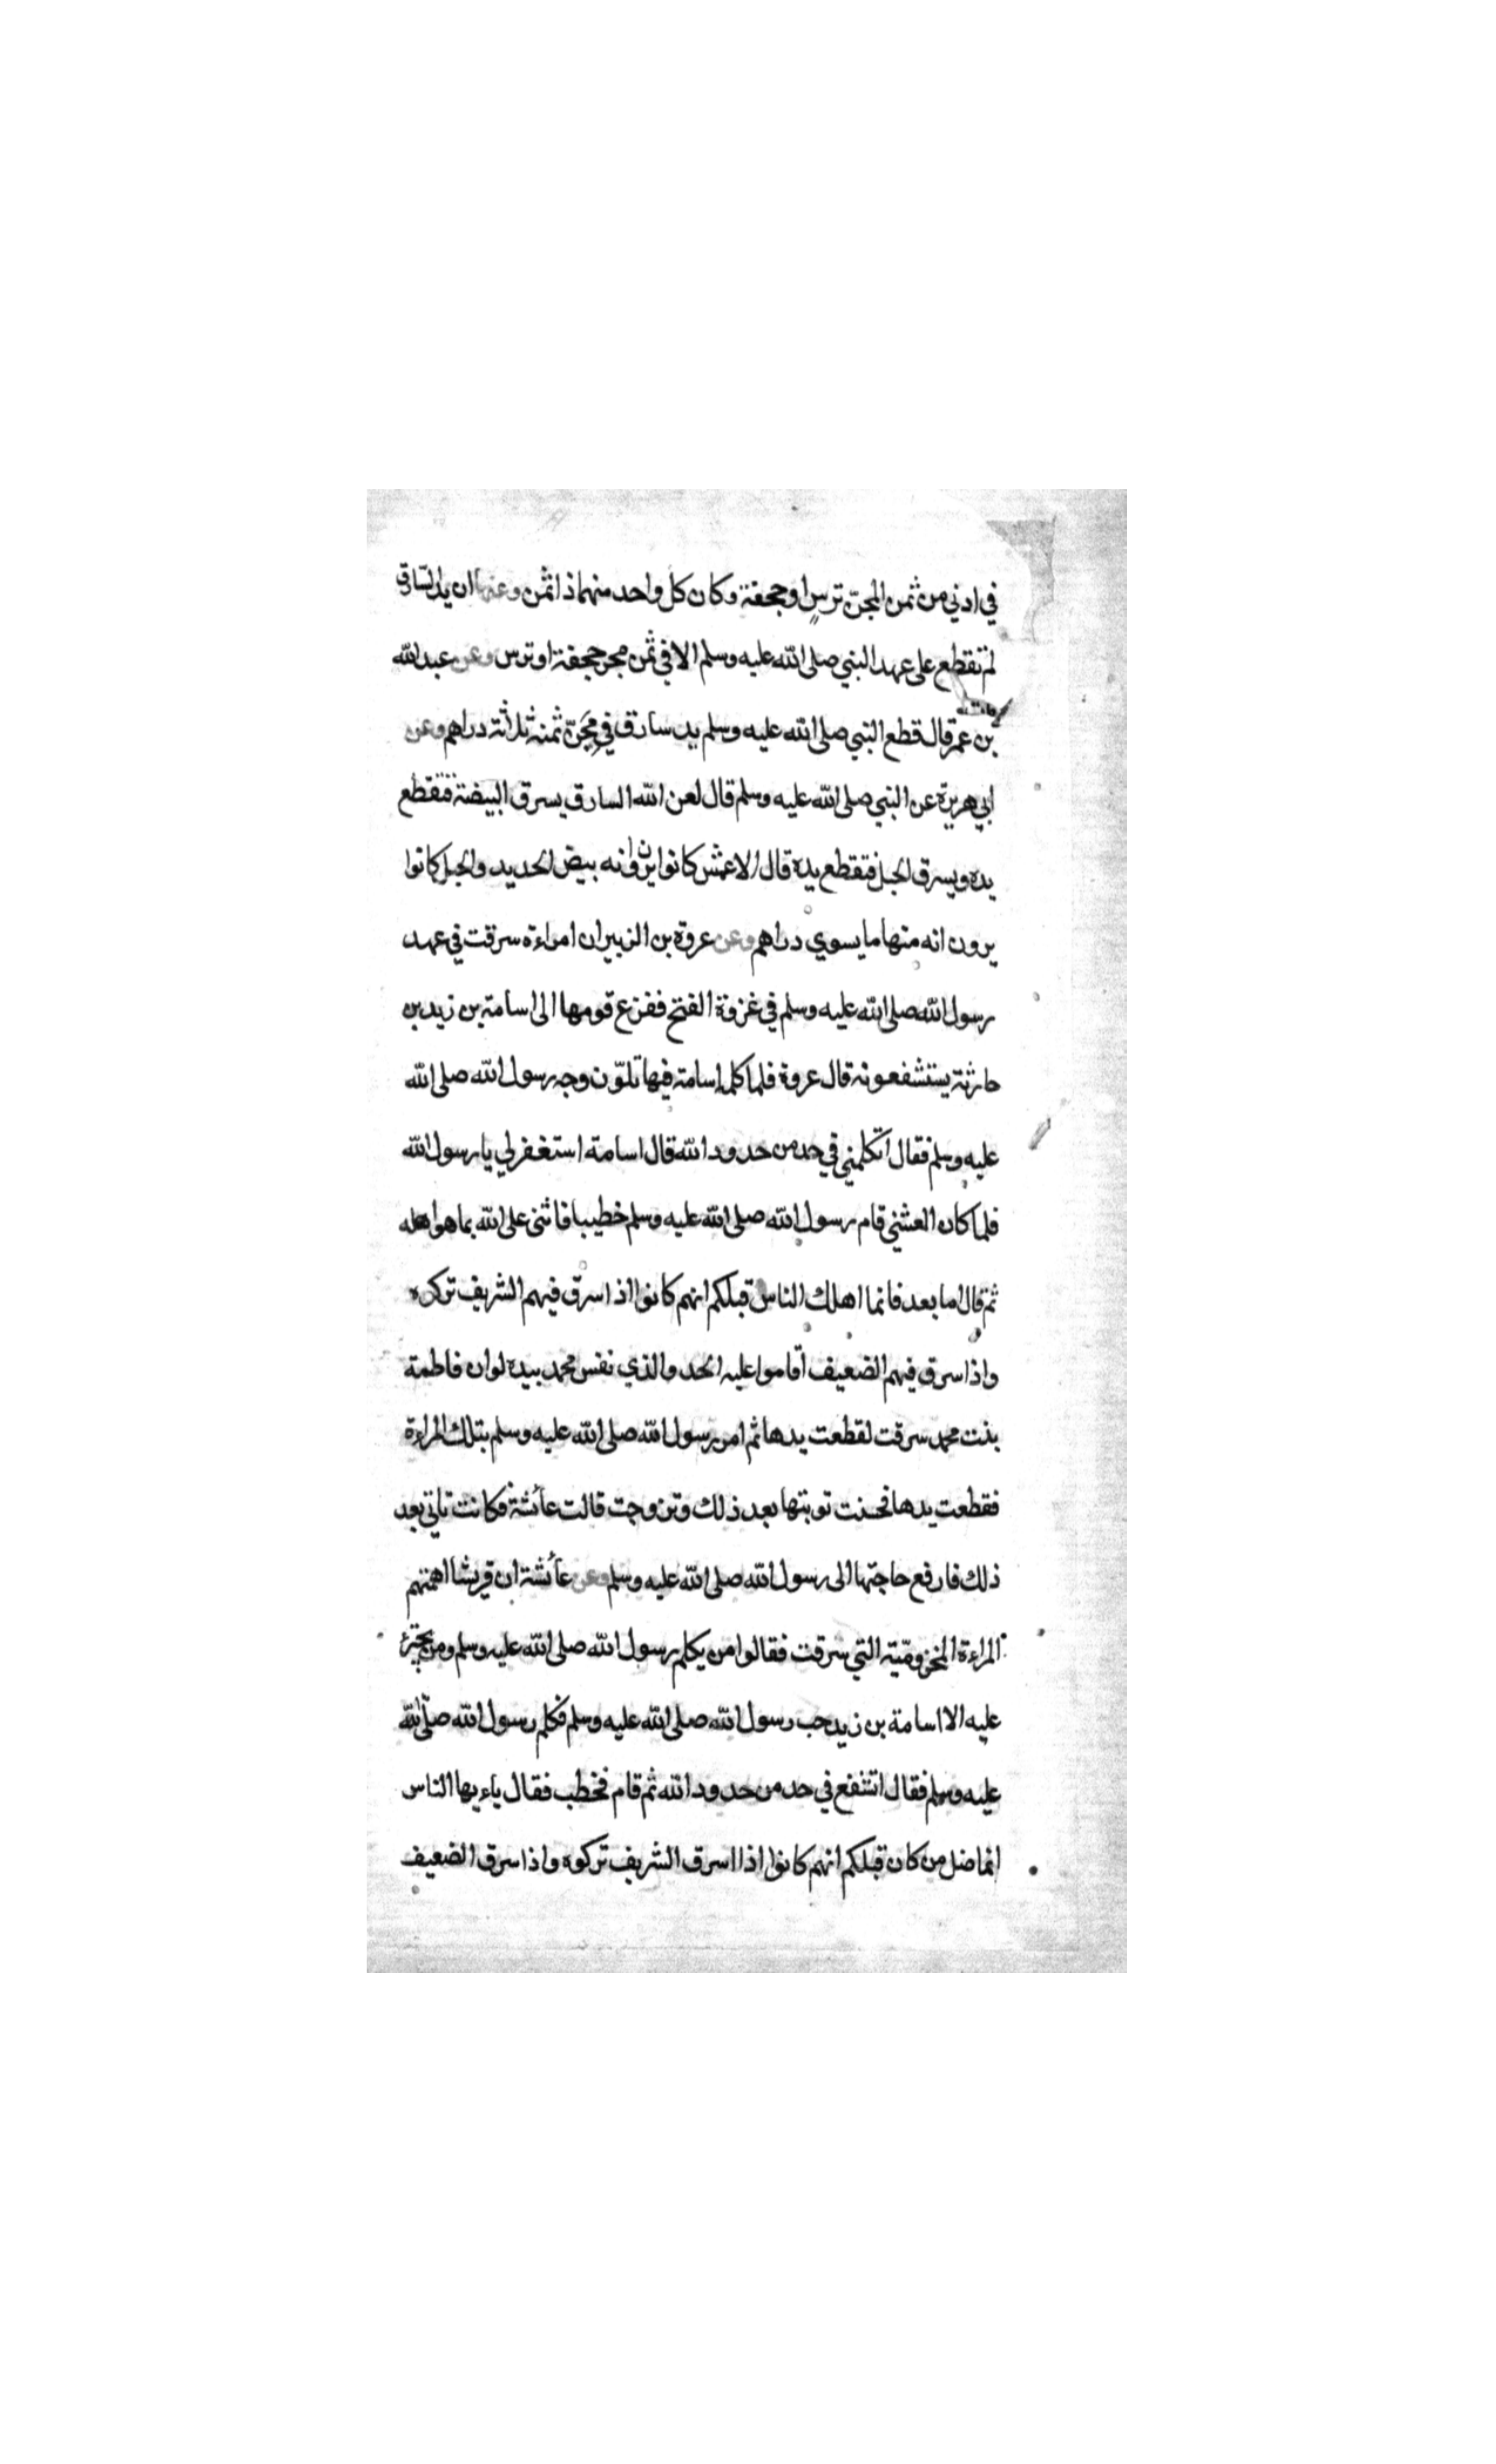 في ادني من ثمن المجنّ ترس او حجفة وكان كل واحد منهما ذا ثمن وعنها ان يد السّارق
لم تقطع على عهد النبي صلى الله عليه وسلم الا في ثمن مجن حجفة او ترس وعن عبد الله
بن عمر قال قطع النبي صلى الله عليه وسلم يد سارق في مِجَنّة ثمنه ثلاثة دراهم وعن
ابي هريرة عن النبي صلى الله عليه وسلم قال لعن الله السارق يسرق البيضة فتقطع
يده ويسرق الحبل فتقطع يده قال الاعمش كانوا يرون انه بيض الحديد والحبل كانوا
يرون انه منها ما يسوي دراهم وعن عروة بن الزبير ان امراءة سرقت في عهد
رسول الله صلى الله عليه وسلم في غزوة الفتح ففزع قومها الى اسامة بن زيد بن
حارثة يستشفعونه قال عروة فلما كلم اسامة فيها تلوّن وجه رسول الله صلى الله
عليه وسلم فقال اتكلمني في حد من حدود الله قال اسامة استغفر لي يا رسول الله
فلما كان العشي قام رسول الله صلى الله عليه وسلم خطيبا فاثنى على الله بما هو اهله
ثم قال اما بعد فانما اهلك الناس قبلكم انهم كانوا اذا سرق فيهم الشريف تركوه
واذا سرق فيهم الضعيف اقاموا عليه الحد والذي نفس محمد بيده لو ان فاطمة
بنت محمد سرقت لقطعت يدها ثم امر رسول الله صلى الله عليه وسلم بتلك المراءة
فقطعت يدها فحسنت توبتها بعد ذلك وتزوجت قالت عائشة فكانت تاتي بعد
ذلك فارفع حاجتها الى رسول الله صلى الله عليه وسلم وعن عائشة ان قريشا اهمتهم
المراءة المخزوميّة التي سرقت فقالوا من يكلم رسول الله صلى الله عليه وسلم ومن يجترئ
عليه الا اسامة بن زيد حب رسول الله صلى الله عليه وسلم فكلم رسول الله صلى الله
عليه وسلم فقال اتشفع في حد من حدود الله ثم قام فخطب فقال ياءيها الناس
انما ضل من كان قبلكم انهم كانوا اذا اسرق الشريف تركوه واذا سرق الضعيف